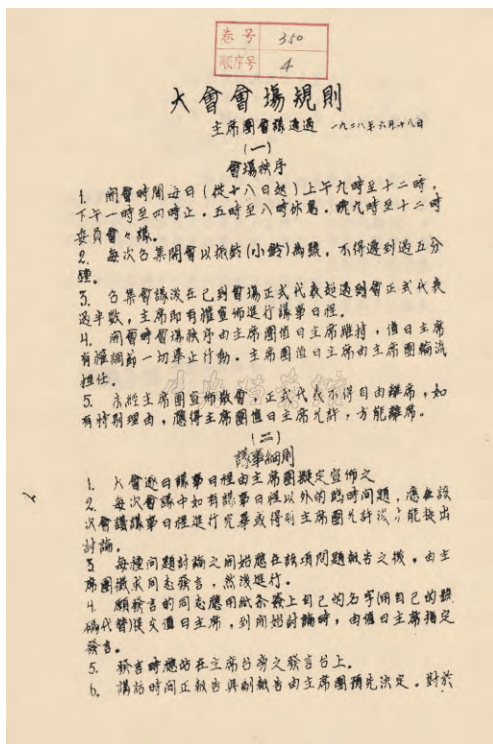 卷号 350
顺序号 4
大會會場規則
主席團會議通過 一九二八年六月十八日
(一)
會場秩序
1. 開會時間每日(從十八日起)上午九時至十二時,
下午一時至四時止。五時至八時休息。晚九時至十二時
委員會々議。
2. 每次召集開會以振鈴(小鈴)為號,不得遲到過五分
鐘。
3. 召集會議後在已到會場正式代表超過到會正式代表
過半數,主席即有權宣佈進行議事日程。
4. 開會時會場秩序由主席團值日主席維持,值日主席
有權調節一切舉止行動。主席團值日主席由主席團輪流
担任。
5. 未經主席團宣佈散會,正式代表不得自由離席,如
有特別理由,應得主席團值日主席允許,方能離席。
(二)
議事細則
1. 大會逐日議事日程由主席團擬定宣佈之
2. 每次會議中如有議事日程以外的臨時問題,應在該
次會議議事日程進行完畢或得到主席團允許後才能提出
討論。
3. 每種問題討論之開始應在該項問題報告之後,由主
席團徵求同志發言,然後進行。
4. 願發言的同志應用紙條簽上自己的名字(用自己的號
碼代替)送交值日主席,到開始討論時,由值日主席指定
發言。
5. 發言時應站在主席台旁之發言台上。
6. 講話時間正報告與副報告由主席團預先決定。對於